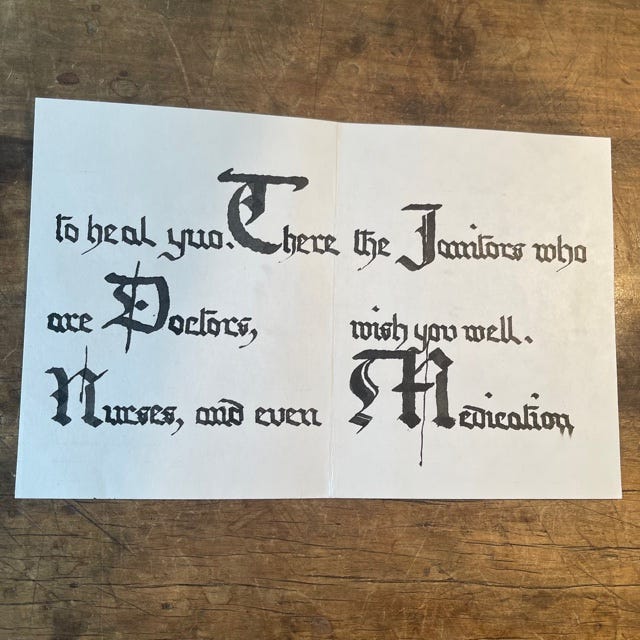 to heal yuo. There
are Doctors,
Nurses, and even
the Janitors who
wish you well.
Medication